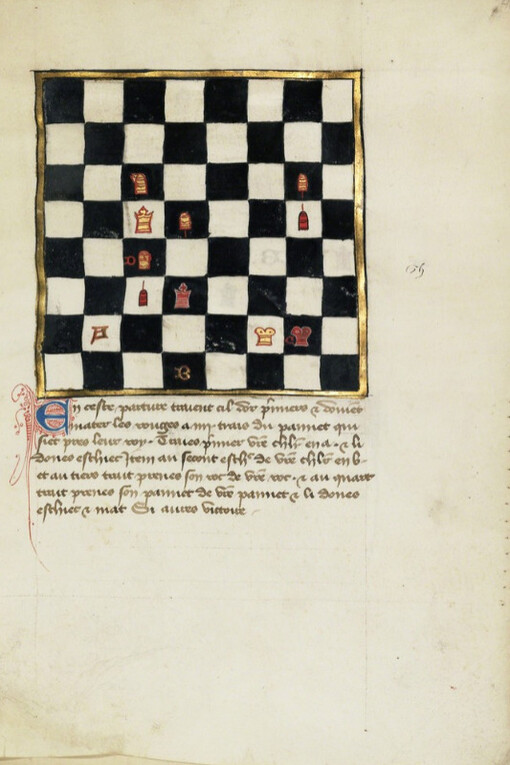 En ceste parture traient cil dor primiers & doivent
mater les rouges a iiij trais du paonnet qui
siet pres leur roy. Traies primier vre chlr en a. & li
dones eschiec Item au secont eschec de vre chlr en b.
et au tiers trait prenes son roc de vre roc. & au quart
trait prenes son paonnet de vre paonnet & li dones
eschiec & mat Si aures victoire